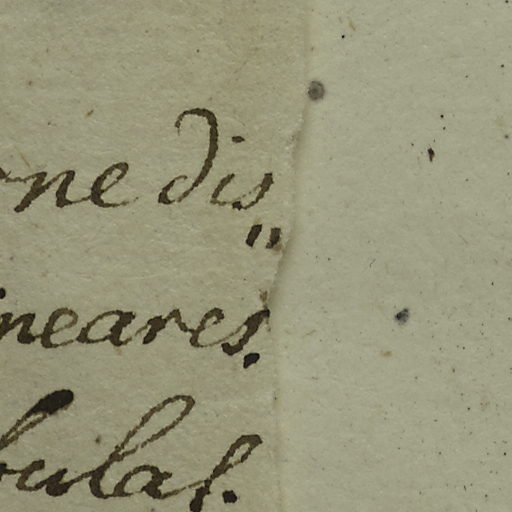 ne dis„
ineares.
bulas.